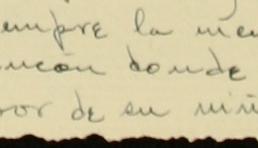 empre la me
ncón donde
or de su niñ